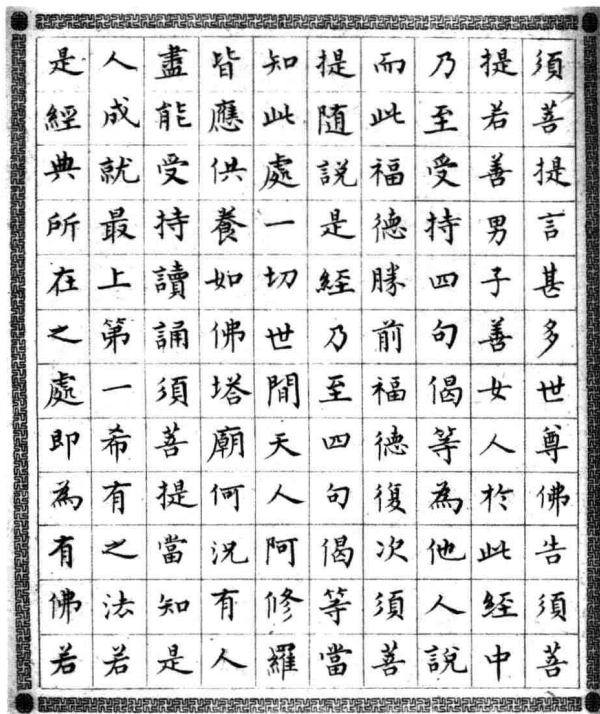 須菩提言甚多世尊佛告須菩
提若善男子善女人於此經中
乃至受持四句偈等為他人說
而此福德勝前福德復次須菩
提随說是經乃至四句偈等當
知此處一切世間天人阿修羅
皆應供養如佛塔廟何況有人
盡能受持讀誦須菩提當知是
人成就最上第一希有之法若
是經典所在之處即為有佛若